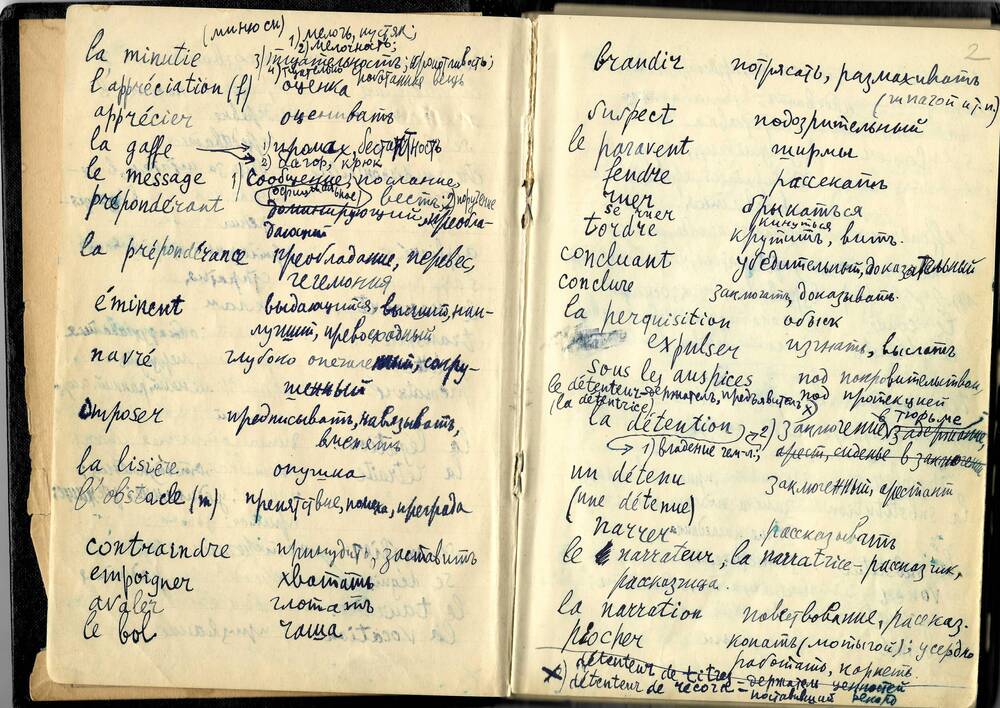 (минюси) 1) мелочь, пустяк;
2) мелочность;
la minutie 3) тщательность; кропотливость;
4) тщательно работанная вещь
l'appréciation (f) оценка
apprécier оценивать
la gaffe 1) промах, бестактность
2) багор, крюк
le message 1) сообщение, послание,
(официальное) весть; 2) поручение
prépondérant доминирующий, преобла-
дающий
la prépondérance преобладание, перевес,
гегемония
éminent выдающийся, высший, наи-
лучший, превосходный
navré глубоко опечаленный, сокру-
шенный
imposer предписывать, навязывать,
внешать
la lisière опушка
l'obstacle (m) препятствие, помеха, преграда
contraindre принудить, заставить
empoigner хватать
avaler глотать
le bol чаша
2
brandir потрясать, размахивать
(шпагой и.т.п.)
suspect подозрительный
le paravent ширмы
fendre рассекать
ruer брыкаться
se ruer кинуться
tordre крутить, вить.
concluant убедительный, доказательный
conclure заключать, доказывать.
la perquisition обыск
expulser изгнать, выслать
sous les auspices под покровительством,
под протекцией
le détenteur - держатель, предъявитель x)
(la détentrice)
la détention 2) заключение в тюрьме, задержание,
1) владение чем-л.; арест, сиденье в заключении
un détenu заключенный, арестант
(une détenue)
narrer рассказывать
le narrateur, la narratrice - рассказчик,
рассказчица.
la narration повествование, рассказ.
piocher копать (мотыгой); усердно
работать, корпеть.
x) détenteur de titres - держатель ценностей
détenteur de record - поставивший рекорд